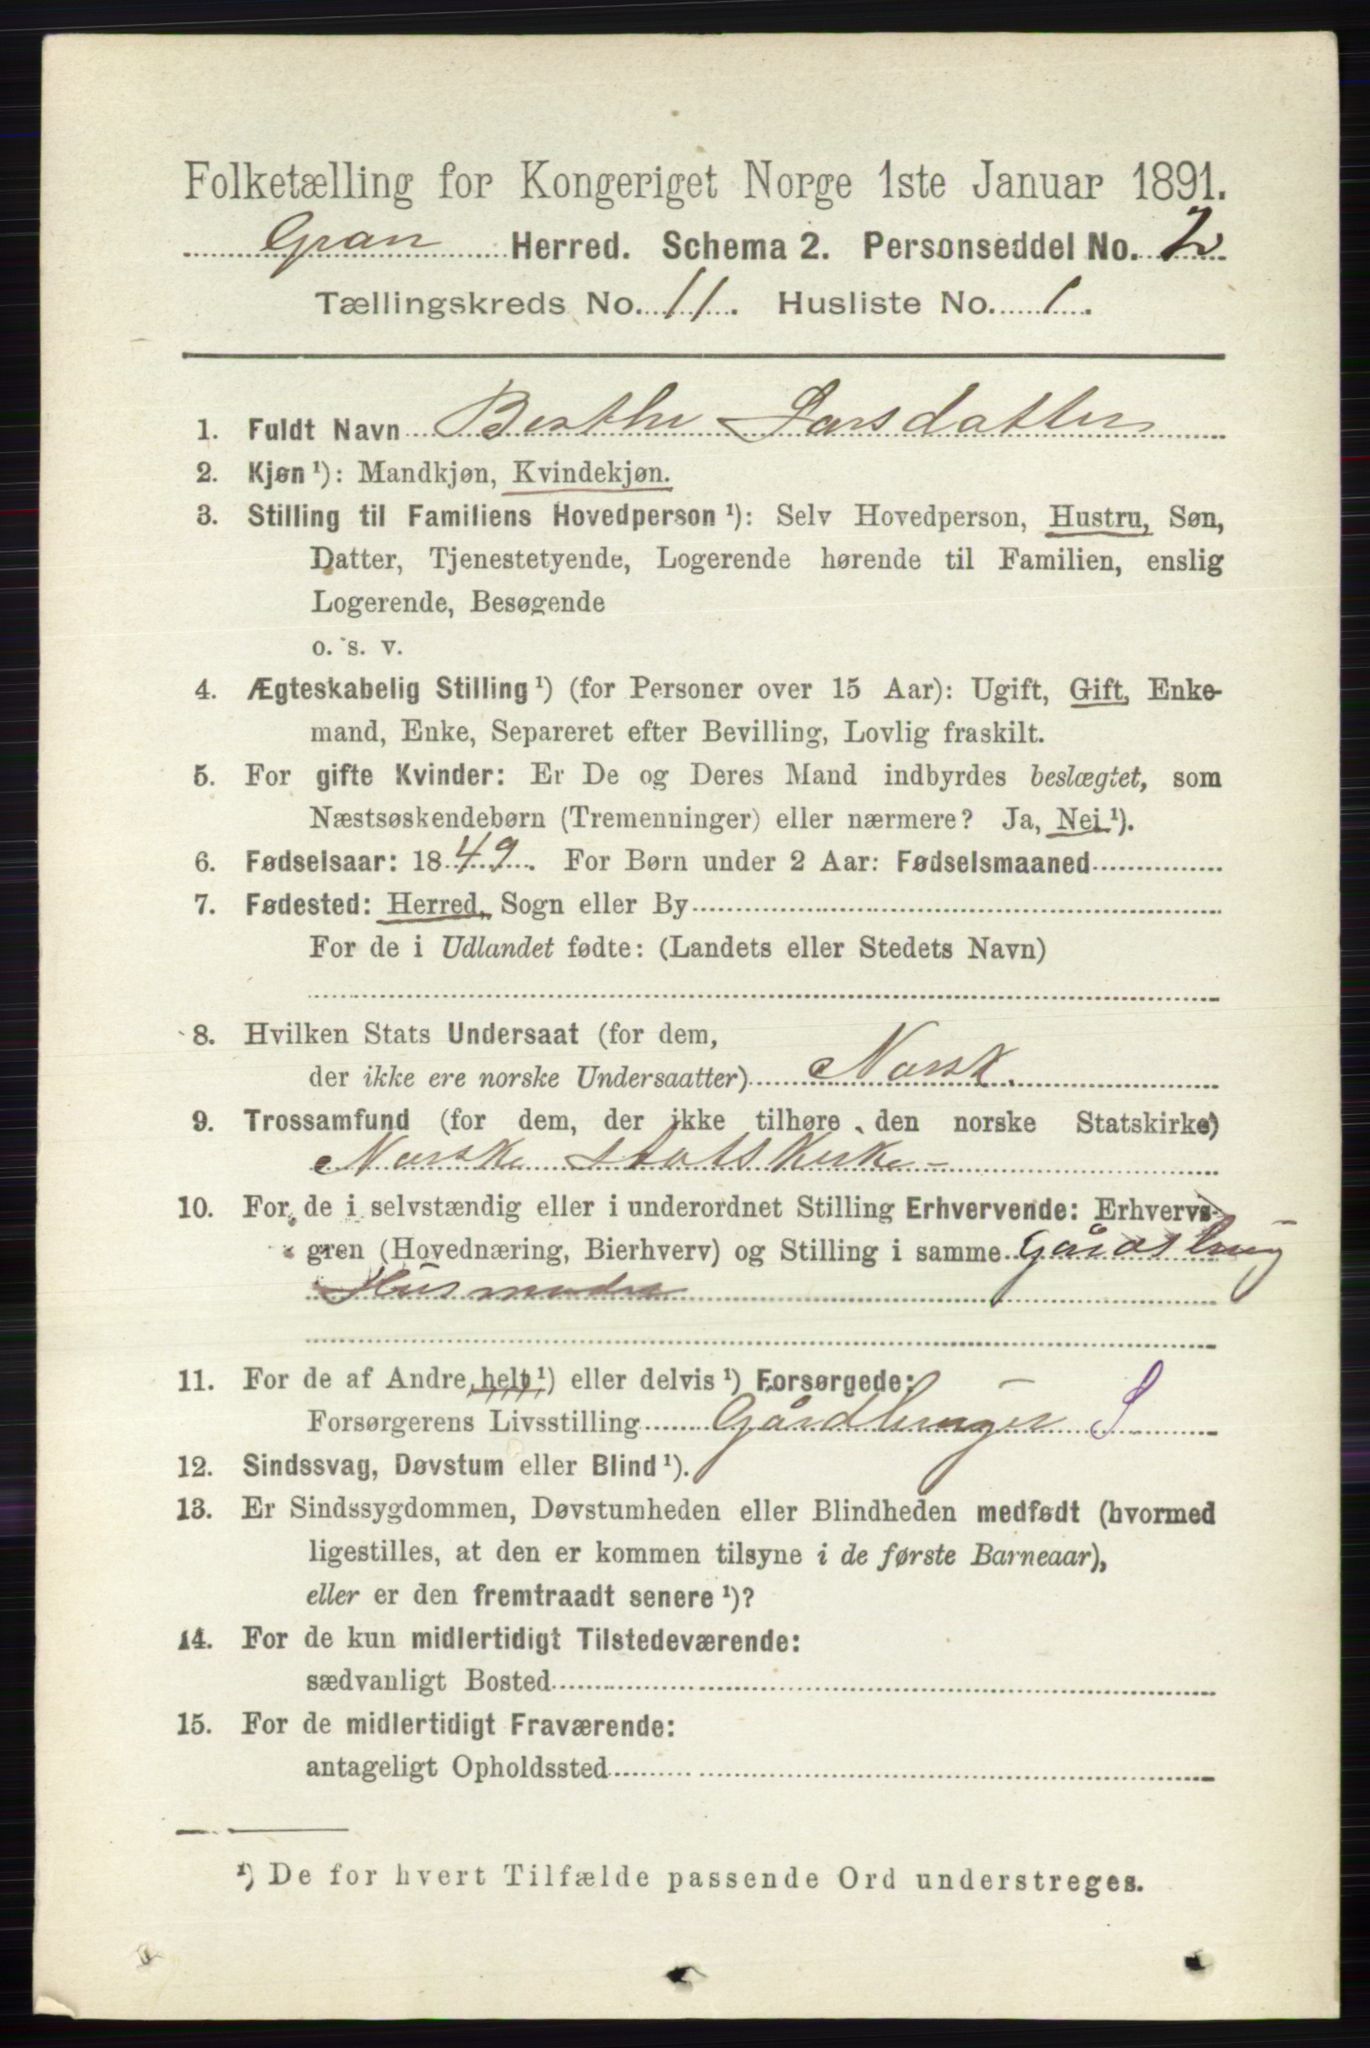 Folketælling for Kongeriget Norge 1ste Januar 1891.
Gran Herred. Schema 2. Personseddel No. 2
Tællingskreds No. 11. Husliste No. 1.
1. Fuldt Navn Berthe Larsdatter
2. Kjøn ¹): Mandkjøn, Kvindekjøn.
3. Stilling til Familiens Hovedperson ¹): Selv Hovedperson, Hustru, Søn,
Datter, Tjenestetyende, Logerende hørende til Familien, enslig
Logerende, Besøgende
o. s. v.
4. Ægteskabelig Stilling ¹) (for Personer over 15 Aar): Ugift, Gift, Enke-
mand, Enke, Separeret efter Bevilling, Lovlig fraskilt.
5. For gifte Kvinder: Er De og Deres Mand indbyrdes beslægtet, som
Næstsøskendebørn (Tremenninger) eller nærmere? Ja, Nei ¹).
6. Fødselsaar: 1849. For Børn under 2 Aar: Fødselsmaaned
7. Fødested: Herred, Sogn eller By
For de i Udlandet fødte: (Landets eller Stedets Navn)
8. Hvilken Stats Undersaat (for dem,
der ikke ere norske Undersaatter) Norsk.
9. Trossamfund (for dem, der ikke tilhøre den norske Statskirke)
Norske statskirke
10. For de i selvstændig eller i underordnet Stilling Erhvervende: Erhvervs-
gren (Hovednæring, Bierhverv) og Stilling i samme Gårdbrug
Husmoder
11. For de af Andre helt ¹) eller delvis ¹) Forsørgede:
Forsørgerens Livsstilling Gårdbruger S
12. Sindssvag, Døvstum eller Blind ¹).
13. Er Sindssygdommen, Døvstumheden eller Blindheden medfødt (hvormed
ligestilles, at den er kommen tilsyne i de første Barneaar),
eller er den fremtraadt senere ¹)?
14. For de kun midlertidigt Tilstedeværende:
sædvanligt Bosted
15. For de midlertidigt Fraværende:
antageligt Opholdssted
¹) De for hvert Tilfælde passende Ord understreges.